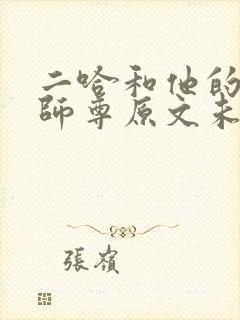 二哈和他的
師尊原文未
張嶺